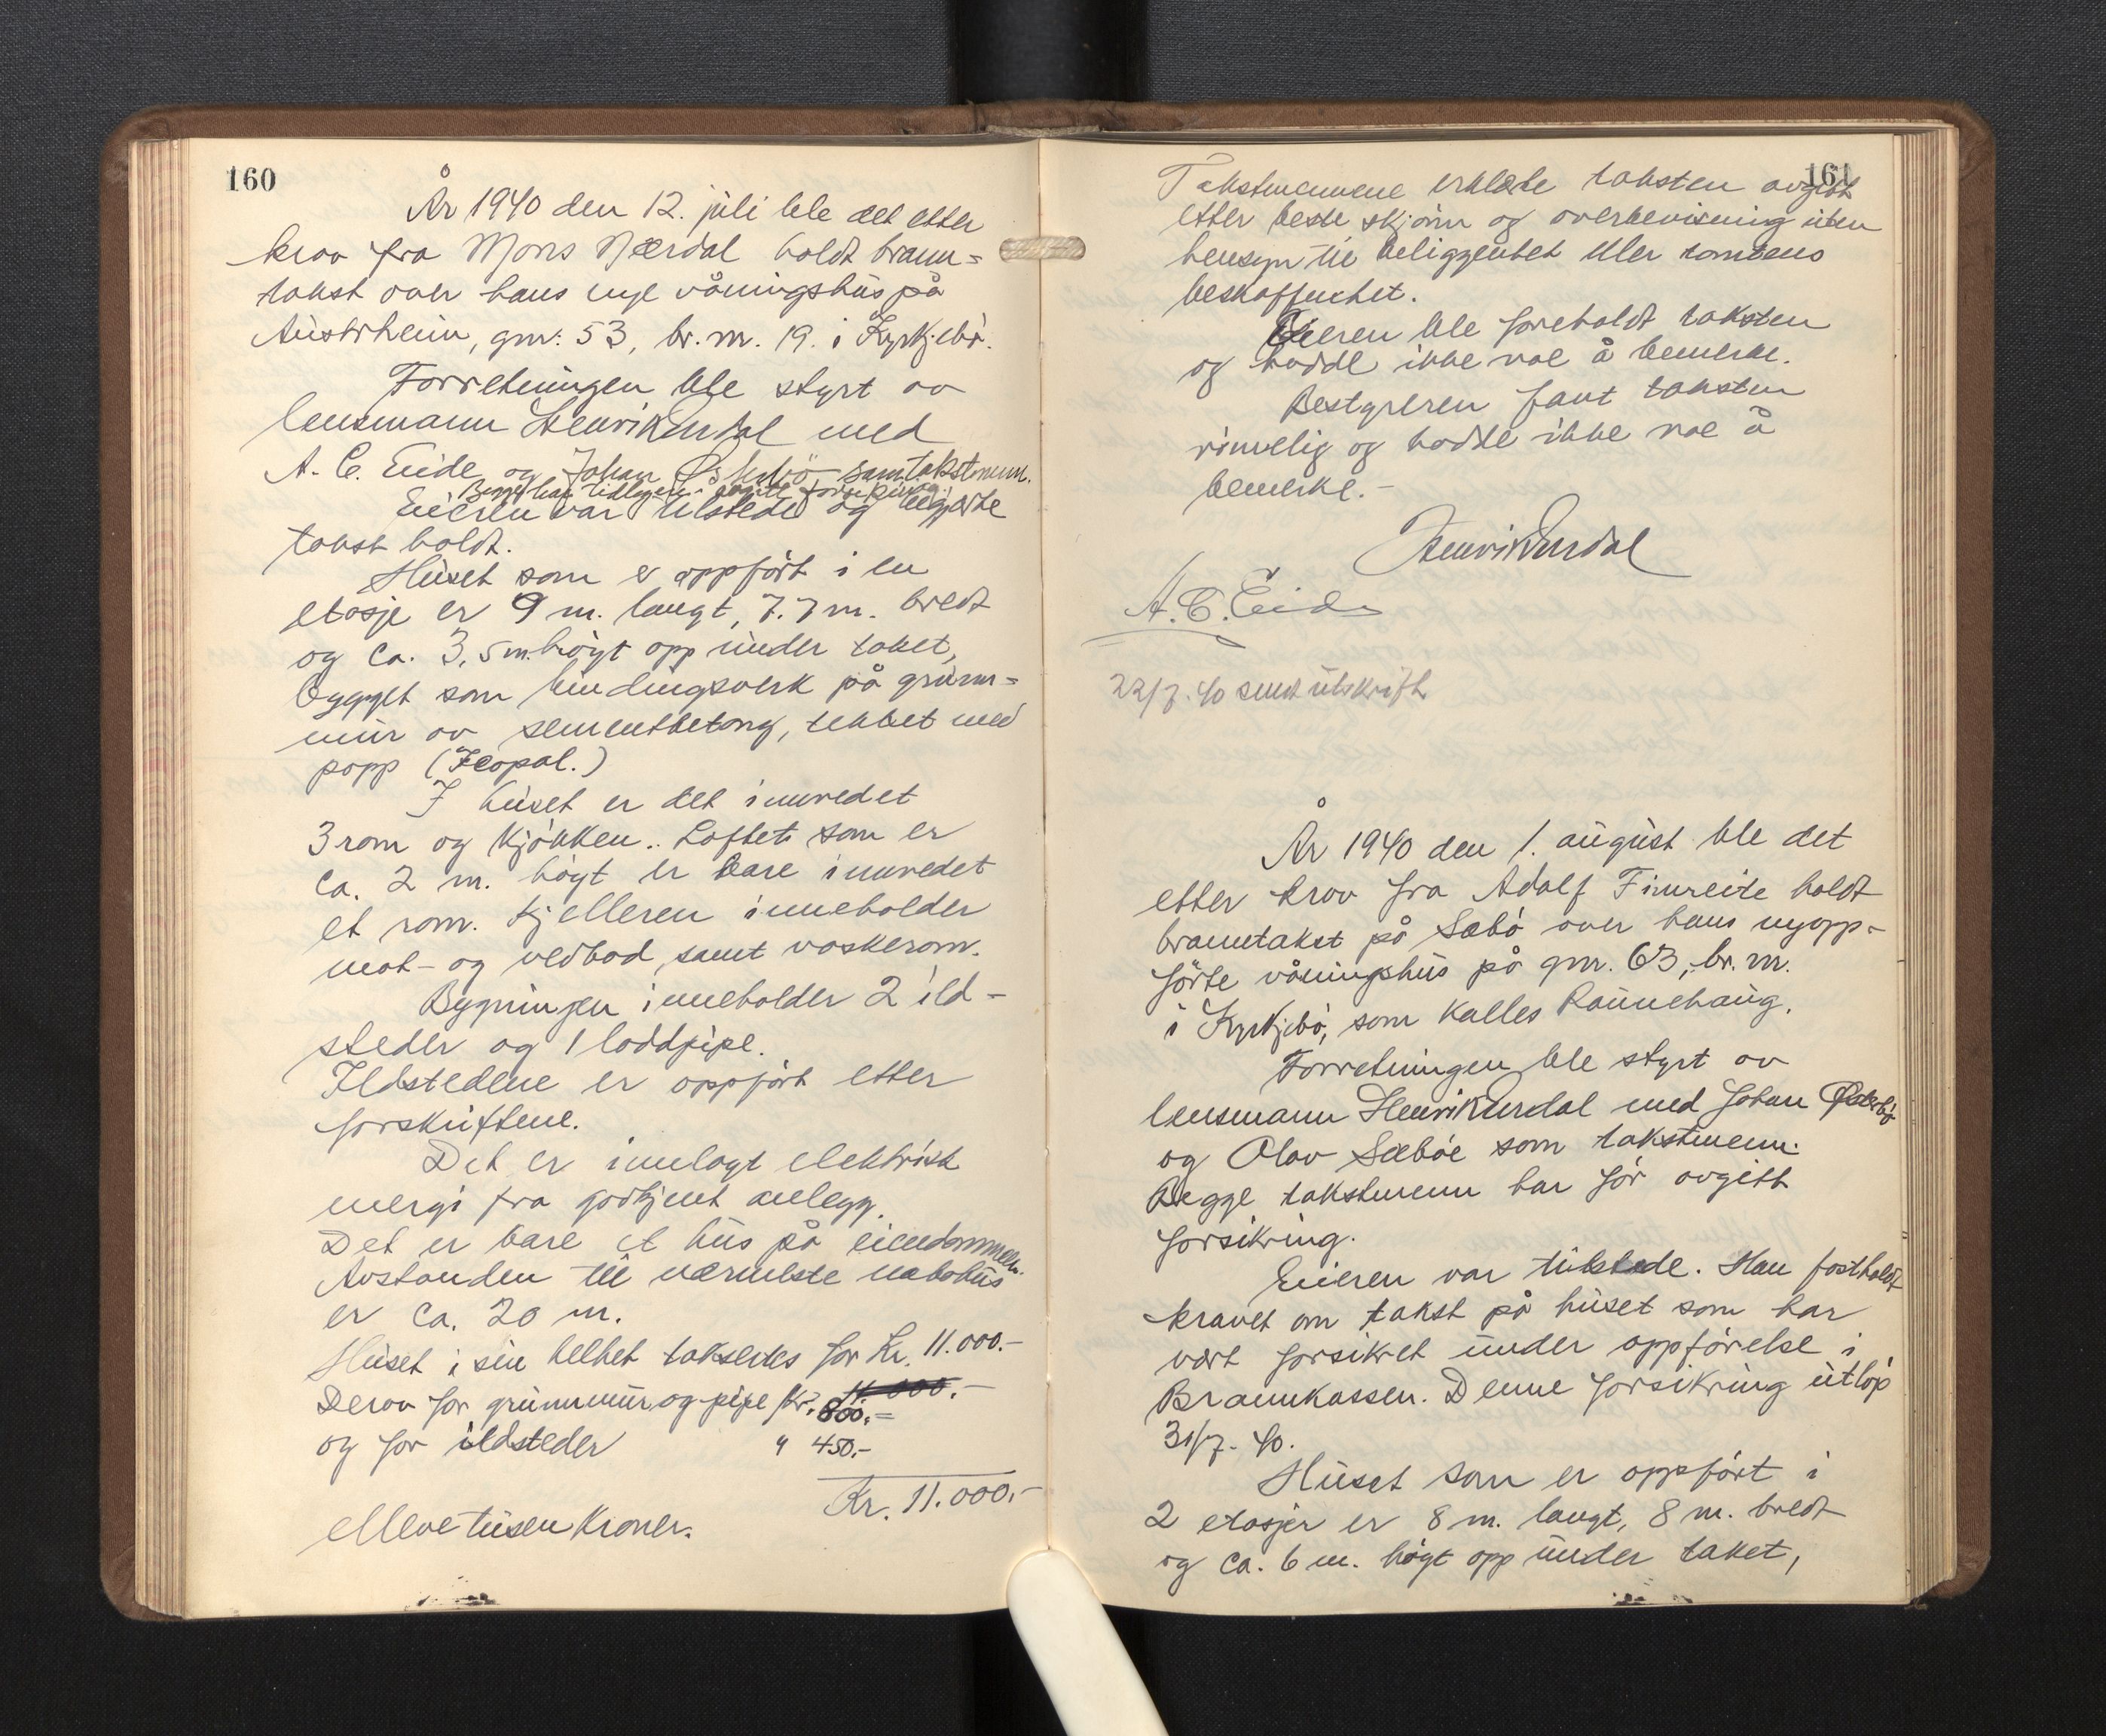 160
År 1940 den 12. juli ble det etter
krav fra Mons Nærdal holdt brann=
takst over hans nye våningshus på
Austrheim, gnr. 53, br. nr. 19. i Kyrkjebø.
Forretningen ble styrt av
lensmann Henrik Urdal med
A. C. Eide og Johan Østerbö som takstmenn.
Begge har tidligere avgitt forsikring.
Eieren var tilstede og begjærte
takst holdt.
Huset som er oppført i en
etasje er 9 m. langt, 7.7 m. bredt
og ca. 3,5 m. høgt opp under taket,
bygget som bindingsverk på grunn=
mur av sementbetong, tekket med
papp (Icopal.)
I huset er det innredet
3 rom og kjøkken.. Loftet som er
ca. 2 m. høgt er bare innredet
et rom. Kjelleren inneholder
mat- og vedbod, samt vaskerom.
Bygningen inneholder 2 ild-
steder og 1 loddpipe.
Ildstedene er oppført etter
forskriftene.
Det er innlagt elektrisk
energi fra godkjent anlegg.
Det er bare et hus på eiendommen.
Avstanden til nærmeste nabohus
er ca. 20 m.
Huset i sin helhet takseres for Kr. 11.000.-
Derav for grunnmur og pipe kr. 11 000.-
800.=
og for ildsteder " 450.-
Kr. 11.000.-
elleve tusen kroner.
161
Takstmennene erklærte taksten avgitt
etter beste skjønn og overbevisning uten
hensyn til beliggenhet eller tomtens
beskaffenhet.
Eieren ble foreholdt taksten
og hadde ikke noe å bemerke.
Bestyreren fant taksten
rimelig og hadde ikke noe å
bemerke.-
Henrik Urdal
A. C. Eide
22/7. 40 sendt utskrift
År 1940 den 1. august ble det
etter krav fra Adolf Finnreite holdt
branntakst på Sæbø over hans nyopp-
førte våningshus på gnr. 63, br. nr.
i Kyrkjebø, som kalles Raunehaug.
Forretningen ble styrt av
lensmann Henrik Urdal med Johan Østerbø
og Olav Sæbøe som takstmenn.
Begge takstmenn har før avgitt
forsikring.
Eieren var tilstede. Han fastholdt
kravet om takst på huset som har
vært forsikret under oppførelse i
Brannkassen. Denne forsikring utløp
31/7. 40.
Huset som er oppført i
2 etasjer er 8 m. langt, 8 m. bredt
og ca. 6 m. høgt opp under taket,